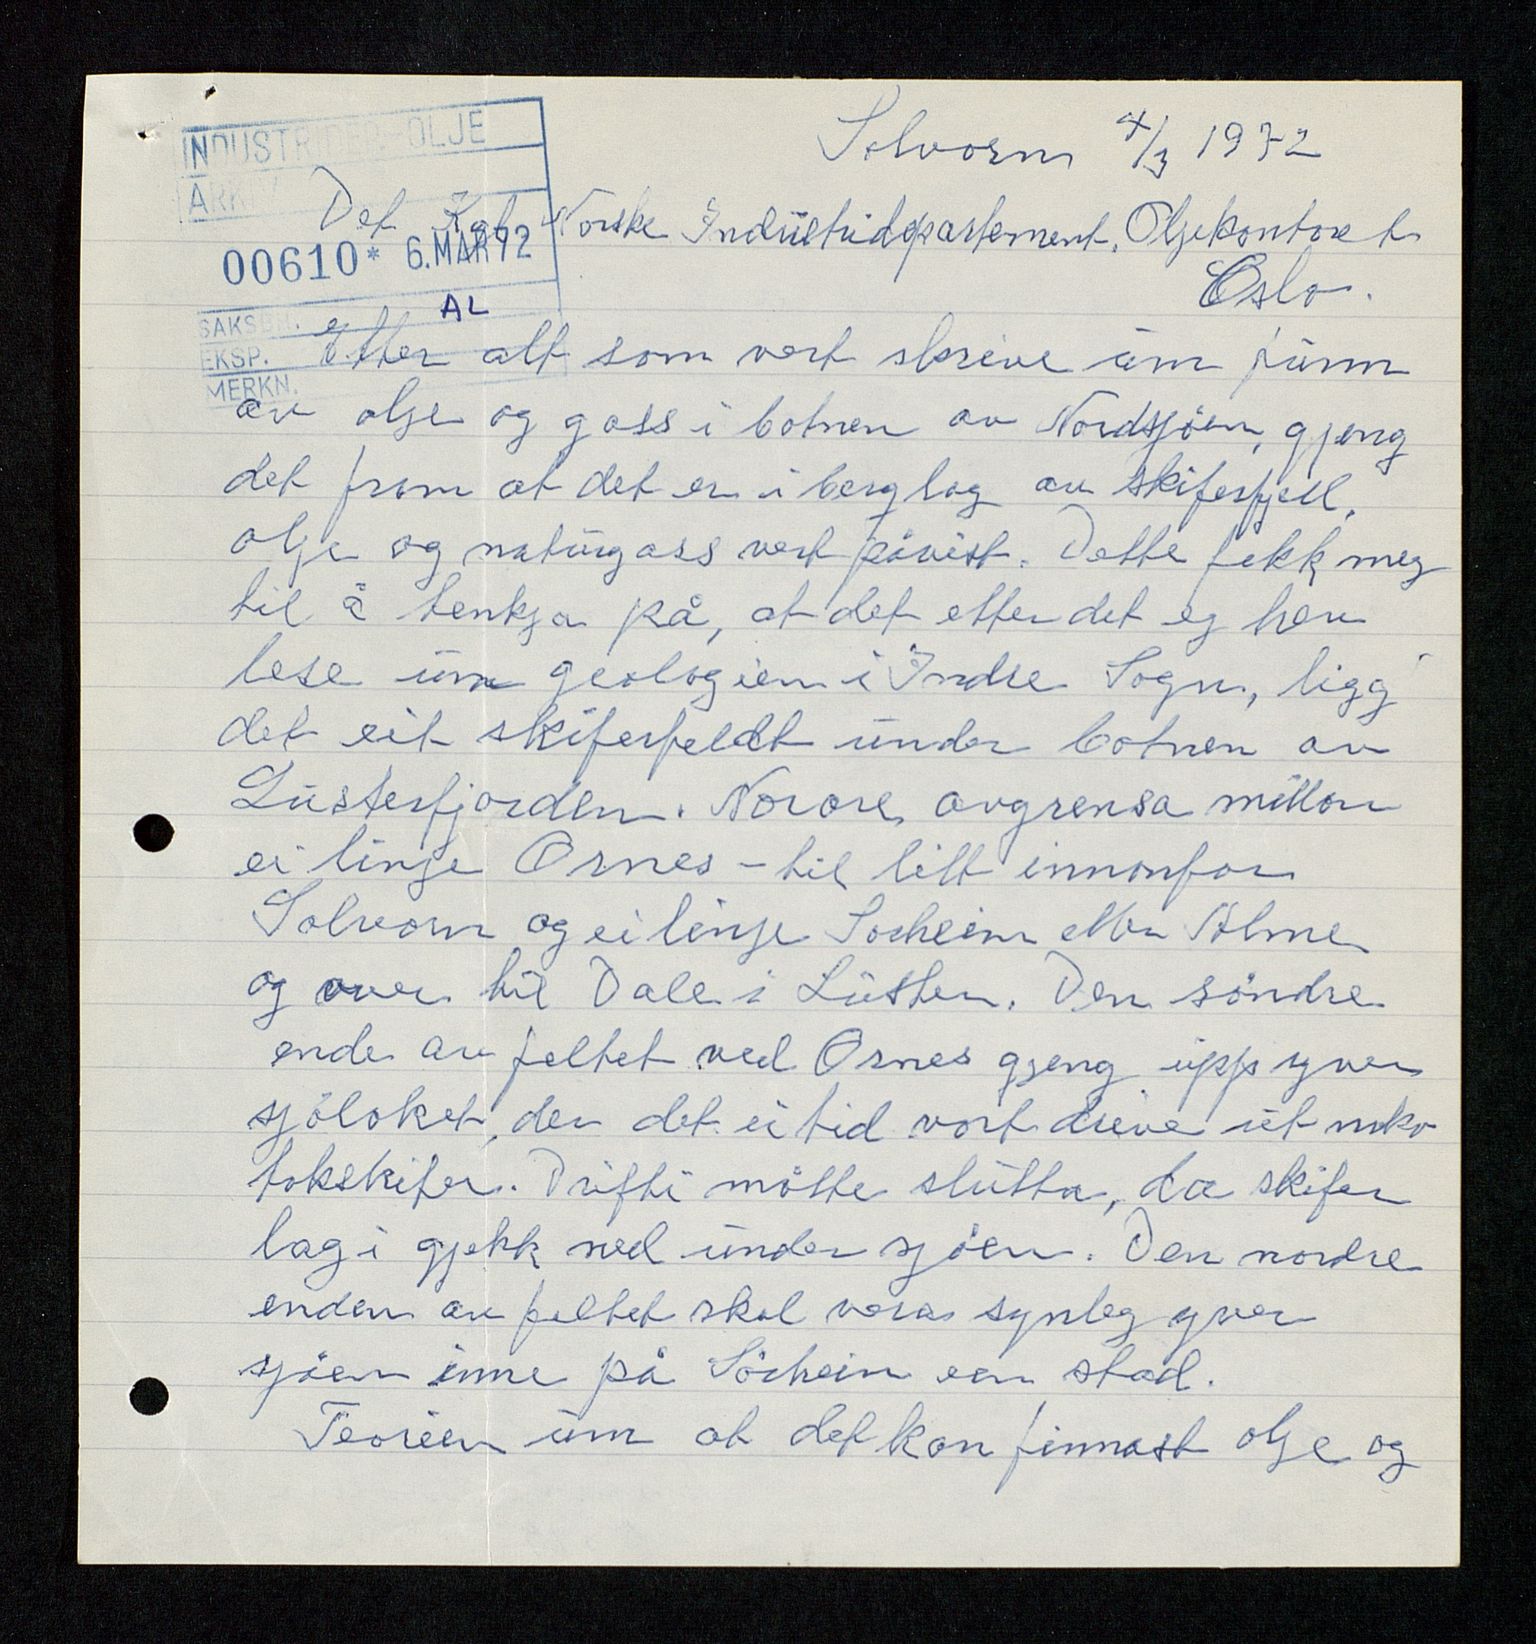 Solvorn 4/3 1972
INDUSTRIDEP. OLJE
ARKIV
Det Kgl. Norske Industridepartement, Oljekontoret
00610* 6.MAR72
Oslo.
AL
SAKSBH.
EKSP.
MERKN.
Etter alt som vert skrive um funn
av olje og gass i botnen av Nordsjöen, gjeng
det fram at det er i berglag av skiferfjell,
olje og naturgass vert påvist. Dette fekk meg
til å tenkja på, at det etter det eg hev
lese um geologien i Indre Sogn, ligg
det eit skiferfeldt under botnen av
Lusterfjorden. avgrensa millom
ei linje Ornes - til litt innanfor
Solvorn og ei linje eller
og over til Dale i Luster. Den söndre
ende av feltet ved Ornes gjeng upp yver
sjöloket, der det ei tid vart drive ut noko
takskifer. Drifti måtte slutta, da skifer
lagi gjekk ned under sjöen. Den nordre
enden av feltet skal vera synleg yver
sjöen inne på ein stad.
Teorien um at det kan finnast olje og